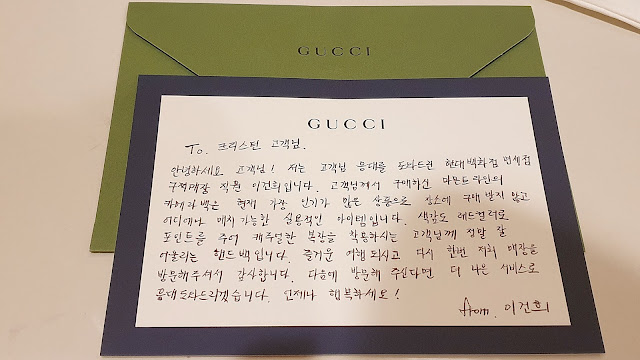 GUCCI
GUCCI
To. 크리스틴 고객님.
안녕하세요 고객님! 저는 고객님 응대를 도와드린 현대백화점 면세점
구찌매장 직원 이건희입니다. 고객님께서 구매하신 라인의
카메라백은 현재 가장 인기가 많은 상품으로 장소에 구애 받지 않고
어디에나 매치 가능한 실용적인 아이템입니다. 색감도 레드컬러로
포인트를 주어 캐주얼한 복장을 착용하시는 고객님께 정말 잘
어울리는 핸드백입니다. 즐거운 여행 되시고 다시 한번 저희 매장을
방문해주셔서 감사합니다. 다음에 방문해 주신다면 더 나은 서비스로
응대 도와드리겠습니다. 언제나 행복하세요!
From. 이건희